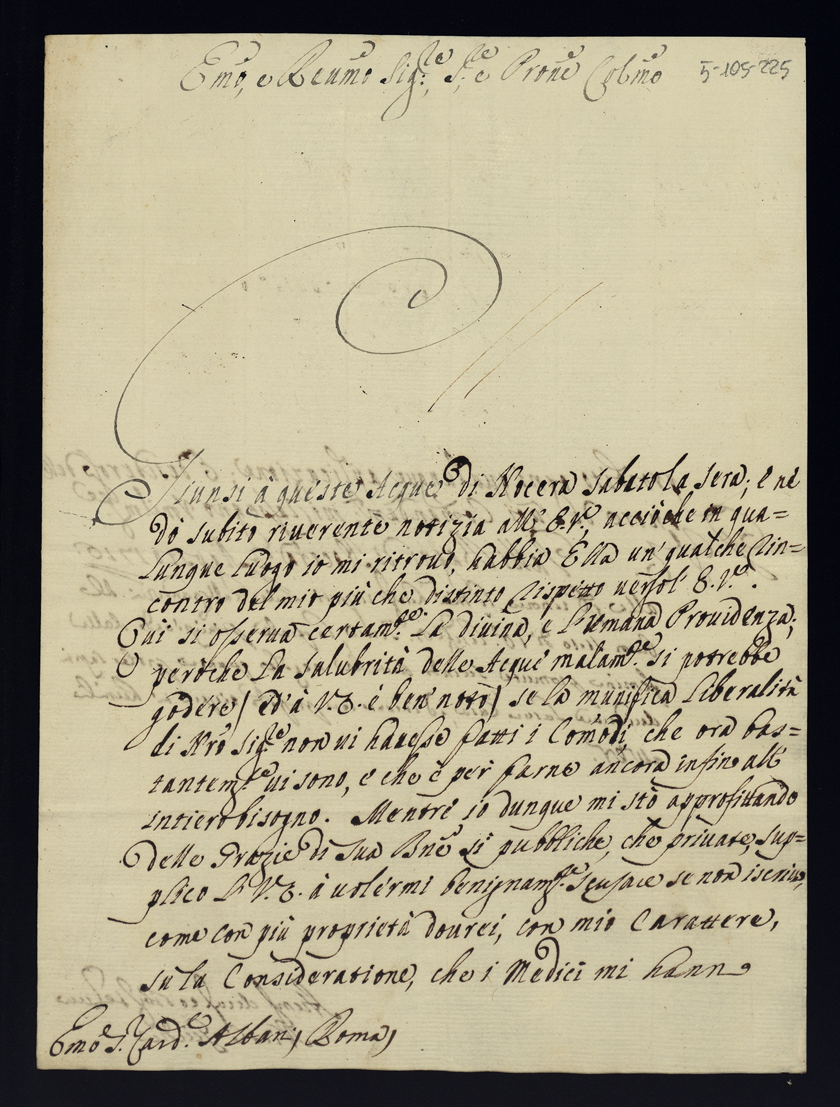 Emo, e Reumo Sig.re, S.re e Prone Colmo
5-105-225
Giunsi à queste Acque di Nocera Sabato la sera; e ne
dò subito riverente notizia all' E.V., acciòche in qua=
lunque luogo io mi ritroui, habbia Ella un' qualche Rin=
contro del mio più che distinto Rispetto verso l' E.V.
Qui si osserua certam.te La divina, e l'umana Providenza;
peroche La Salubrità delle Acque malam.te si potrebbe
godere/ ed' à V.E. è ben' noto/ se la munifica Liberalità
di Nro Sig.re non ui hauesse fatti i Comodi, che ora bas=
tantem.te ui sono, e che è per farne ancora infino all'
intiero bisogno. Mentre io dunque mi stò approfittando
delle Grazie di Sua Bne sì pubbliche, che private, sup=
plico L' V.E. à uolermi benignam.te scusare se non iscriuo,
come con più proprietà dourei, con mio Carattere,
su la Consideratione, che i Medici mi hanno
Emo S. Card. Albani Roma